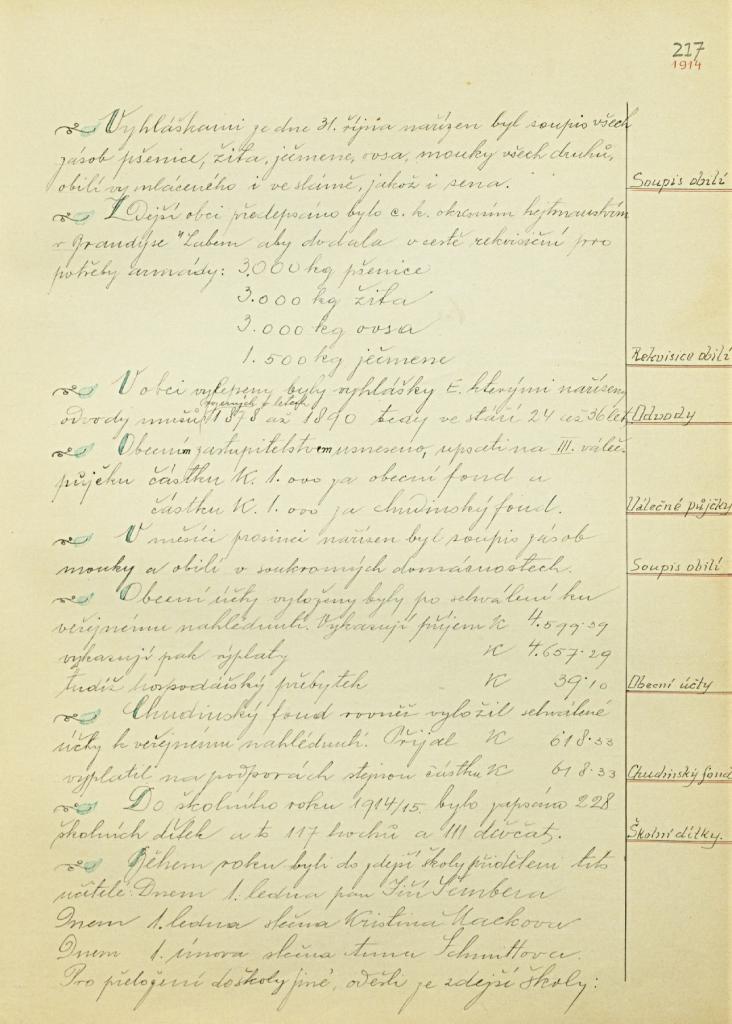 217
1914
Vyhláškami ze dne 31. října nařízen byl soupis všech
zásob pšenice, žita, ječmene, ovsa, mouky všech druhů,
obilí vymláceného i ve slámě, jakož i sena.
Soupis obilí
Zdejší obci předepsáno bylo c. k. okresním hejtmanstvím
v Brandýse "Labem aby dodala v cestě rekvisiční pro
potřeby armády: 3.000 kg pšenice
3.000 kg žita
3.000 kg ovsa
1.500 kg ječmene
Rekvisice obilí
V obci vylepeny byly vyhlášky E. kterými nařízeny
odvody mužů zrozených v letech 1878 až 1890 tedy ve stáří 24 až 36 let
Odvody
Obecním zastupitelstvem usneseno, upsati na III. váleč.
půjčku částku K. 1.000 za obecní fond a
částku K. 1.000 za chudinský fond.
Válečné půjčky
V měsíci prosinci nařízen byl soupis zásob
mouky a obilí v soukromých domácnostech.
Soupis obilí
Obecní účty vyloženy byly po schválení ku
veřejnému nahlédnutí. Vykazují příjem K 4.599.39
vykazují pak výplaty K 4.657.29
tudíž hospodářský přebytek K 39.10
Obecní účty
Chudinský fond rovněž vyložil schválené
účty k veřejnému nahlédnutí. Přijal K 618.33
vyplatil na podporách stejnou částku K 618.33
Chudinský fond
Do školního roku 1914/15 bylo zapsáno 228
školních dítek a to 117 hochů a 111 děvčat.
Školní dítky.
Během roku byli do zdejší školy přiděleni tito
učitelé: Dnem 1. ledna pan Jiří Šembera
Dnem 1. ledna slečna Kristina Mackova
Dnem 1. února slečna Anna Schmittova.
Pro přeložení do školy jiné, odešli ze zdejší školy: